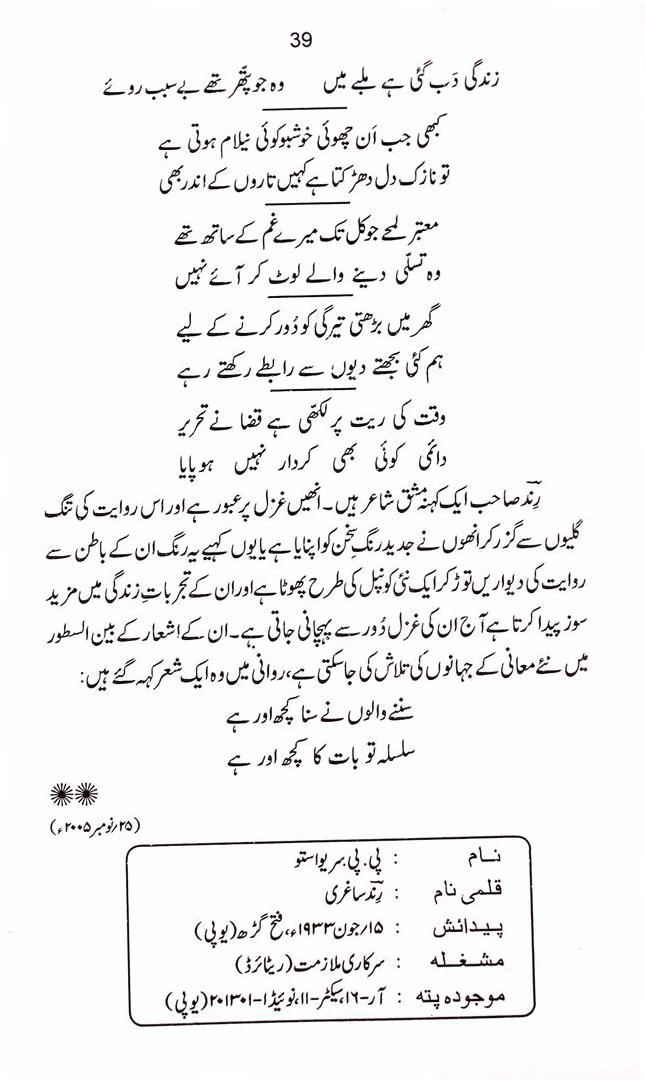 39
زندگی دَب گئی ہے ملبے میں وہ جو پتھّر تھے بے سبب روئے
کبھی جب اَن چھوئی خوشبو کوئی نیلام ہوتی ہے
تو نازک دل دھڑکتا ہے کہیں تاروں کے اندر بھی
معتبر لمحے جو کل تک میرے غم کے ساتھ تھے
وہ تسلّی دینے والے لوٹ کر آئے نہیں
گھر میں بڑھتی تیرگی کو دُور کرنے کے لیے
ہم کئی بجھتے دیوں سے رابطے رکھتے رہے
وقت کی ریت پر لکھّی ہے قضا نے تحریر
دائمی کوئی بھی کردار نہیں ہو پایا
رِندؔ صاحب ایک کہنہ مشق شاعر ہیں۔ انھیں غزل پر عبور ہے اور اس روایت کی تنگ
گلیوں سے گزر کر انھوں نے جدید رنگِ سخن کو اپنایا ہے یا یوں کہیے یہ رنگ ان کے باطن سے
روایت کی دیواریں توڑ کر ایک نئی کونپل کی طرح پھوٹا ہے اور ان کے تجرباتِ زندگی میں مزید
سوز پیدا کرتا ہے آج ان کی غزل دُور سے پہچانی جاتی ہے۔ ان کے اشعار کے بین السطور
میں نئے معانی کے جہانوں کی تلاش کی جا سکتی ہے، روانی میں وہ ایک شعر کہہ گئے ہیں:
سننے والوں نے سنا کچھ اور ہے
سلسلہ تو بات کا کچھ اور ہے
(۲۵؍نومبر ۲۰۰۵ء)
نام : پی. پی. سریواستو
قلمی نام : رِندؔ ساغری
پیدائش : ۱۵؍جون ۱۹۳۳ء، فتح گڑھ (یوپی)
مشغلہ : سرکاری ملازمت (ریٹائرڈ)
موجودہ پتہ : آر-۱۶، سیکٹر-۱۱، نوئیڈا-۲۰۱۳۰۱ (یوپی)